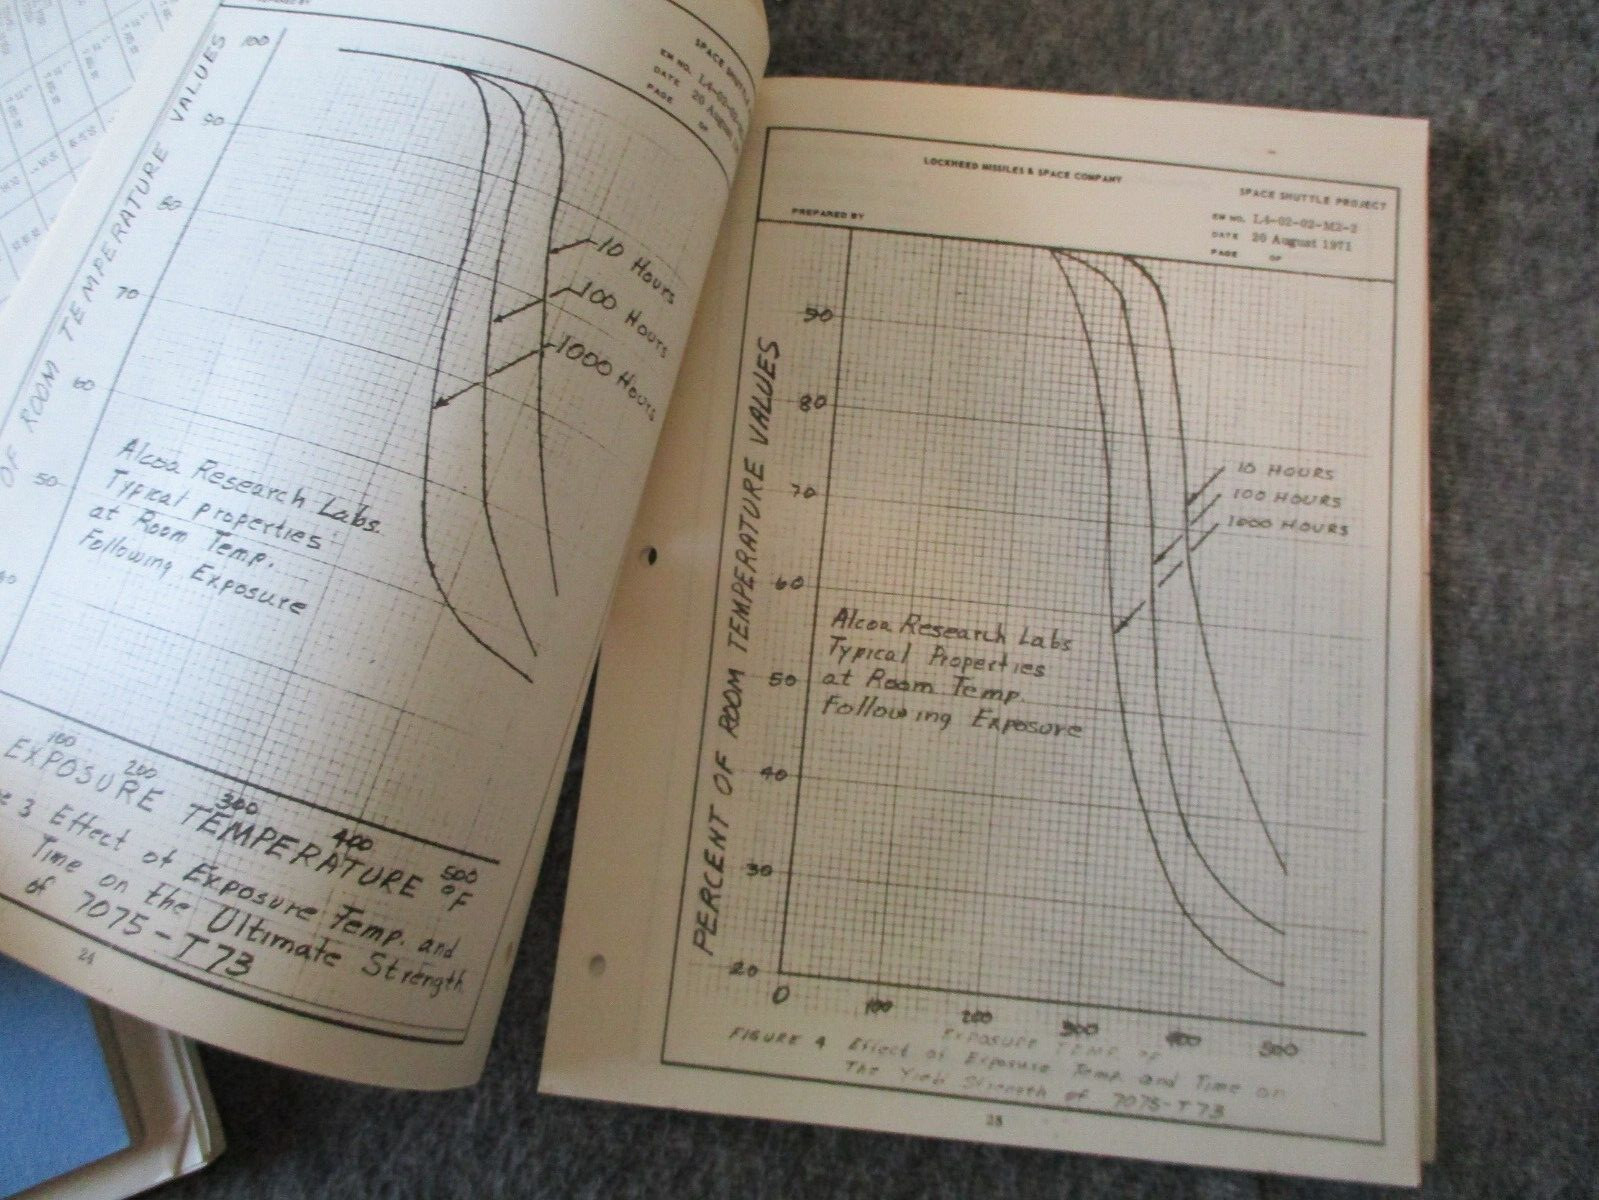 PREPARED BY
SPACE SHUTTLE
EM NO. L4-02-02
DATE 20 August
PAGE OF
OF ROOM TEMPERATURE VALUES
100
90
80
70
60
50
40
10 HOURS
100 HOURS
1000 HOURS
Alcoa Research Labs.
Typical properties
at Room Temp.
Following Exposure
100
200
300
400
500
EXPOSURE TEMPERATURE °F
3 Effect of Exposure Temp. and
Time on the Ultimate Strength
of 7075-T73
24
LOCKHEED MISSILES & SPACE COMPANY
SPACE SHUTTLE PROJECT
PREPARED BY
EM NO. L4-02-02-M2-2
DATE 20 August 1971
PAGE OF
PERCENT OF ROOM TEMPERATURE VALUES
90
80
70
60
50
40
30
20
10 HOURS
100 HOURS
1000 HOURS
Alcoa Research Labs
Typical Properties
at Room Temp.
Following Exposure
0
100
200
300
400
500
EXPOSURE TEMP. °F
FIGURE 4 Effect of Exposure Temp. and Time on
The Yield Strength of 7075-T73
25